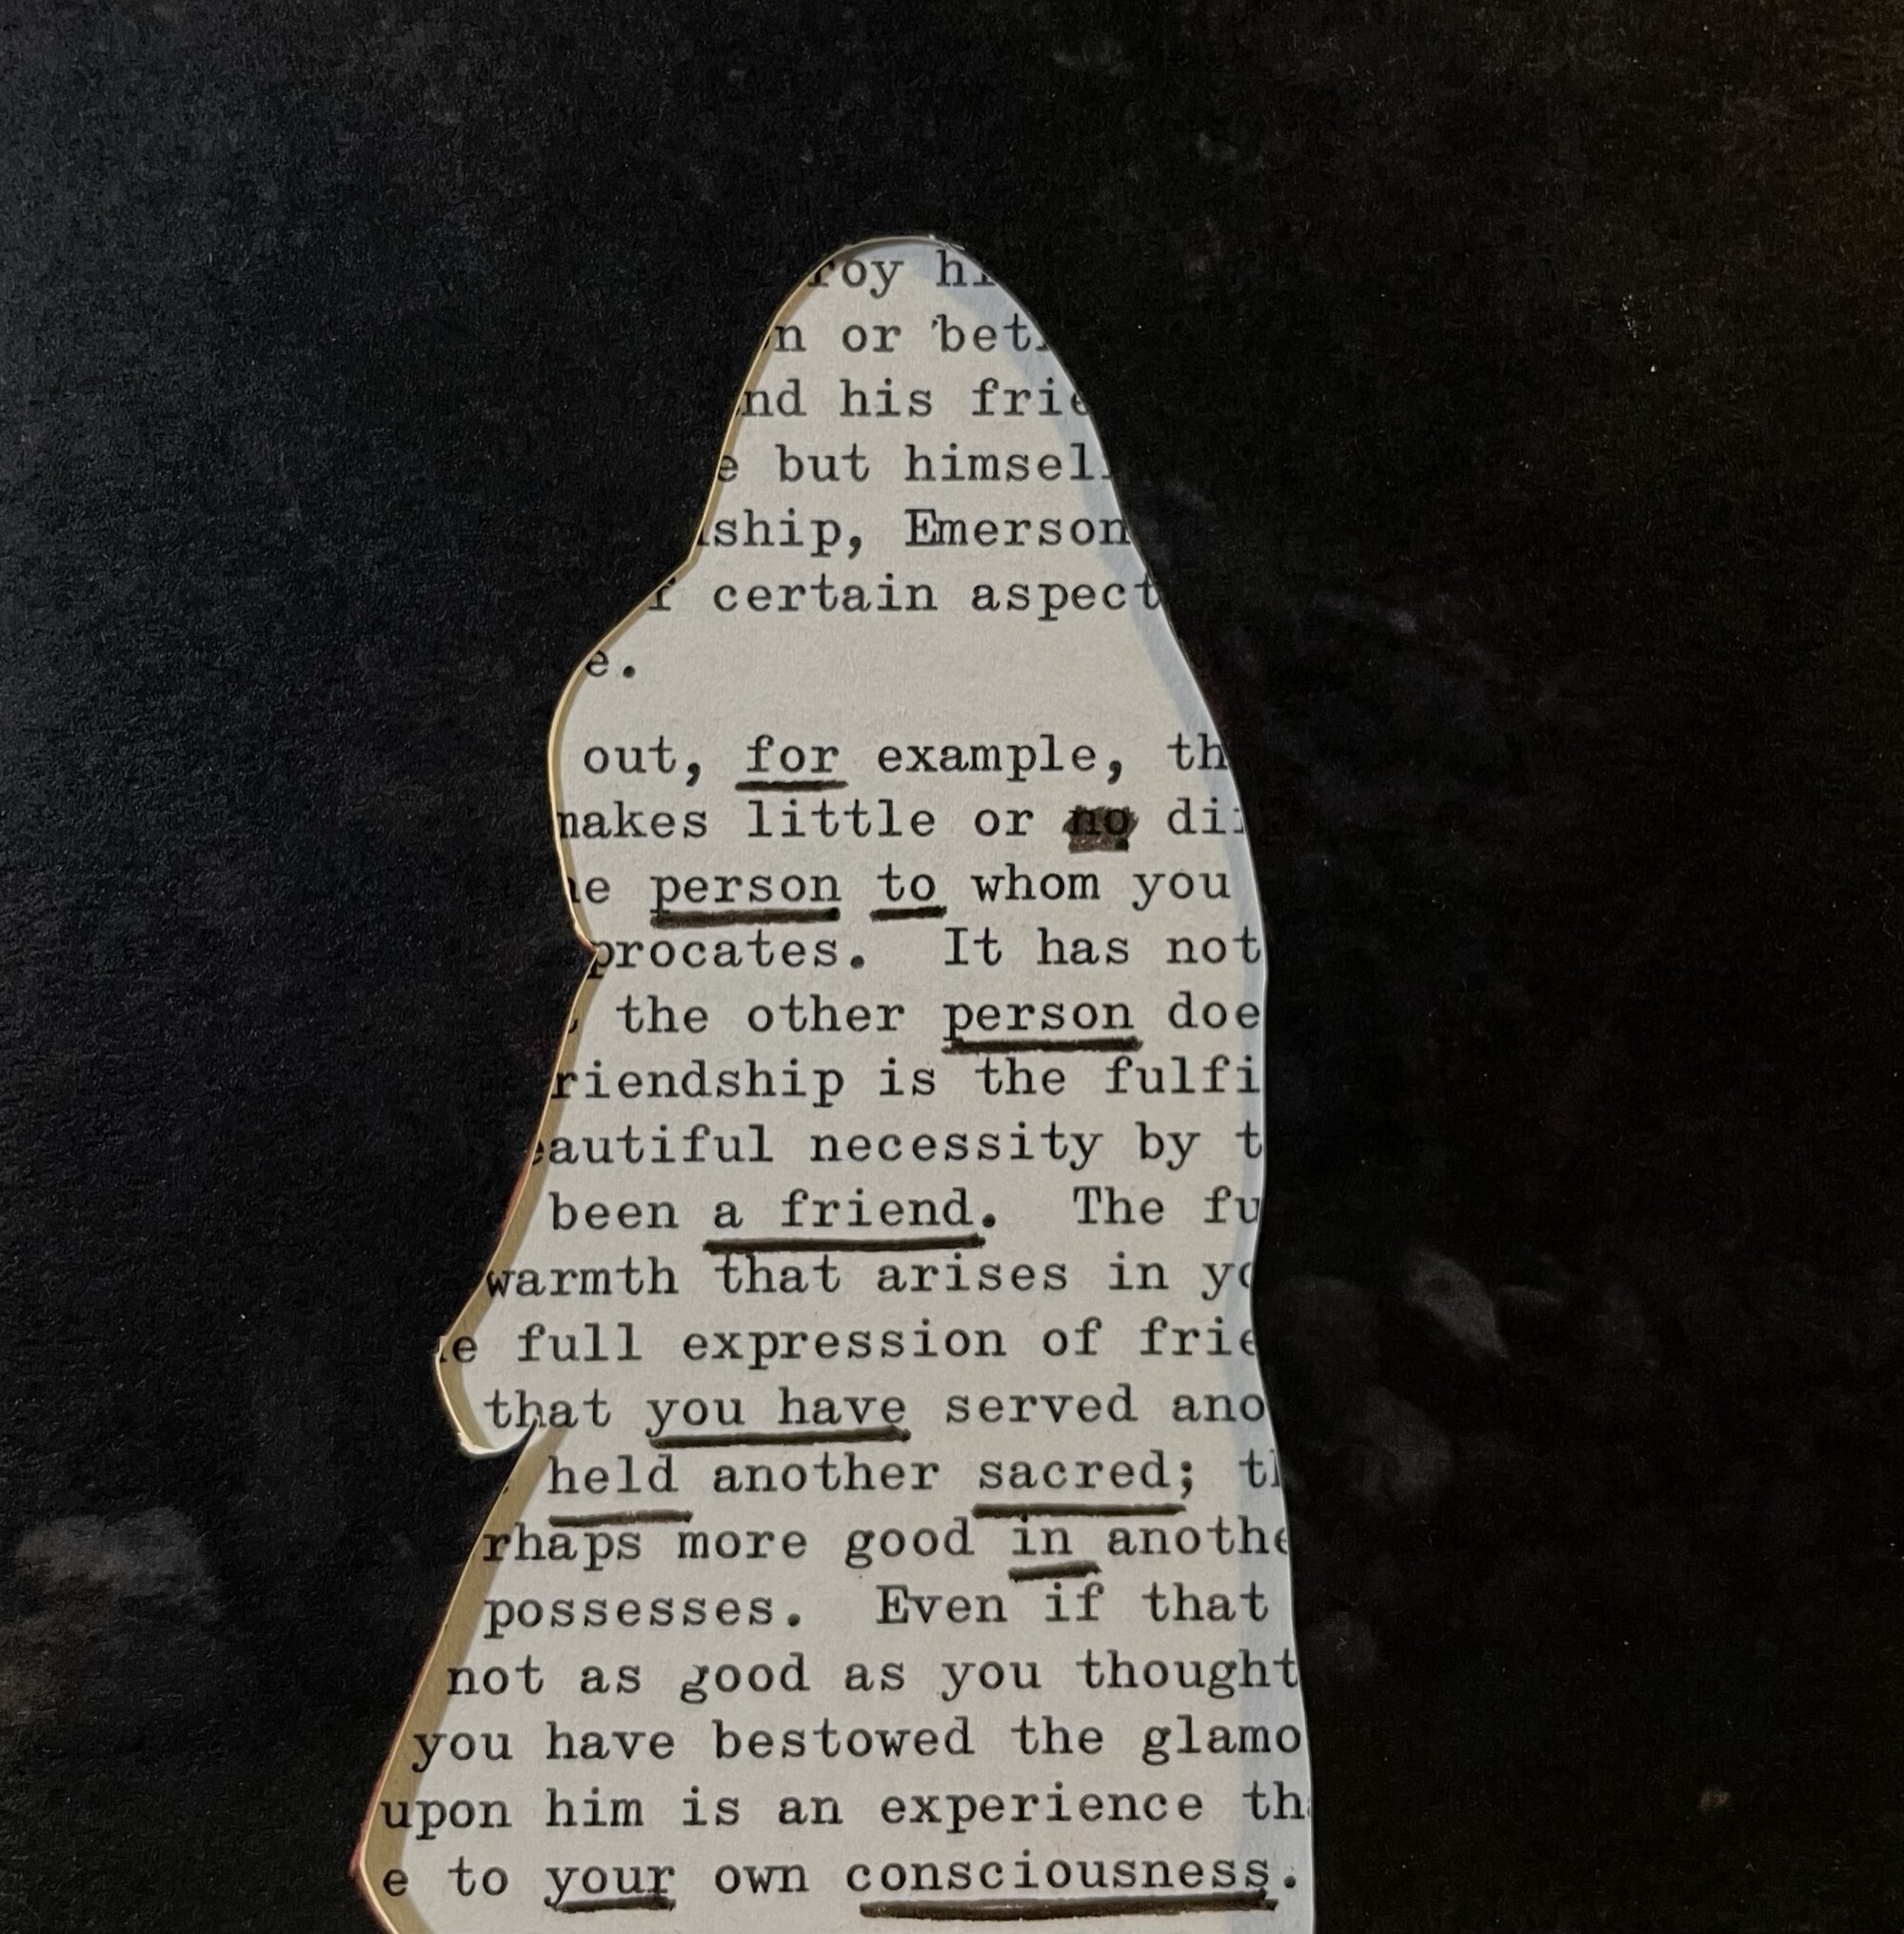 roy hi
n or bet
nd his frie
e but himsel
ship, Emerson
r certain aspect
e.
out, for example, th
makes little or no di
e person to whom you
procates. It has not
the other person doe
riendship is the fulfi
eautiful necessity by t
been a friend. The fu
warmth that arises in yo
e full expression of frie
that you have served ano
held another sacred; th
rhaps more good in anothe
possesses. Even if that
not as good as you thought
you have bestowed the glamo
upon him is an experience tha
e to your own consciousness.